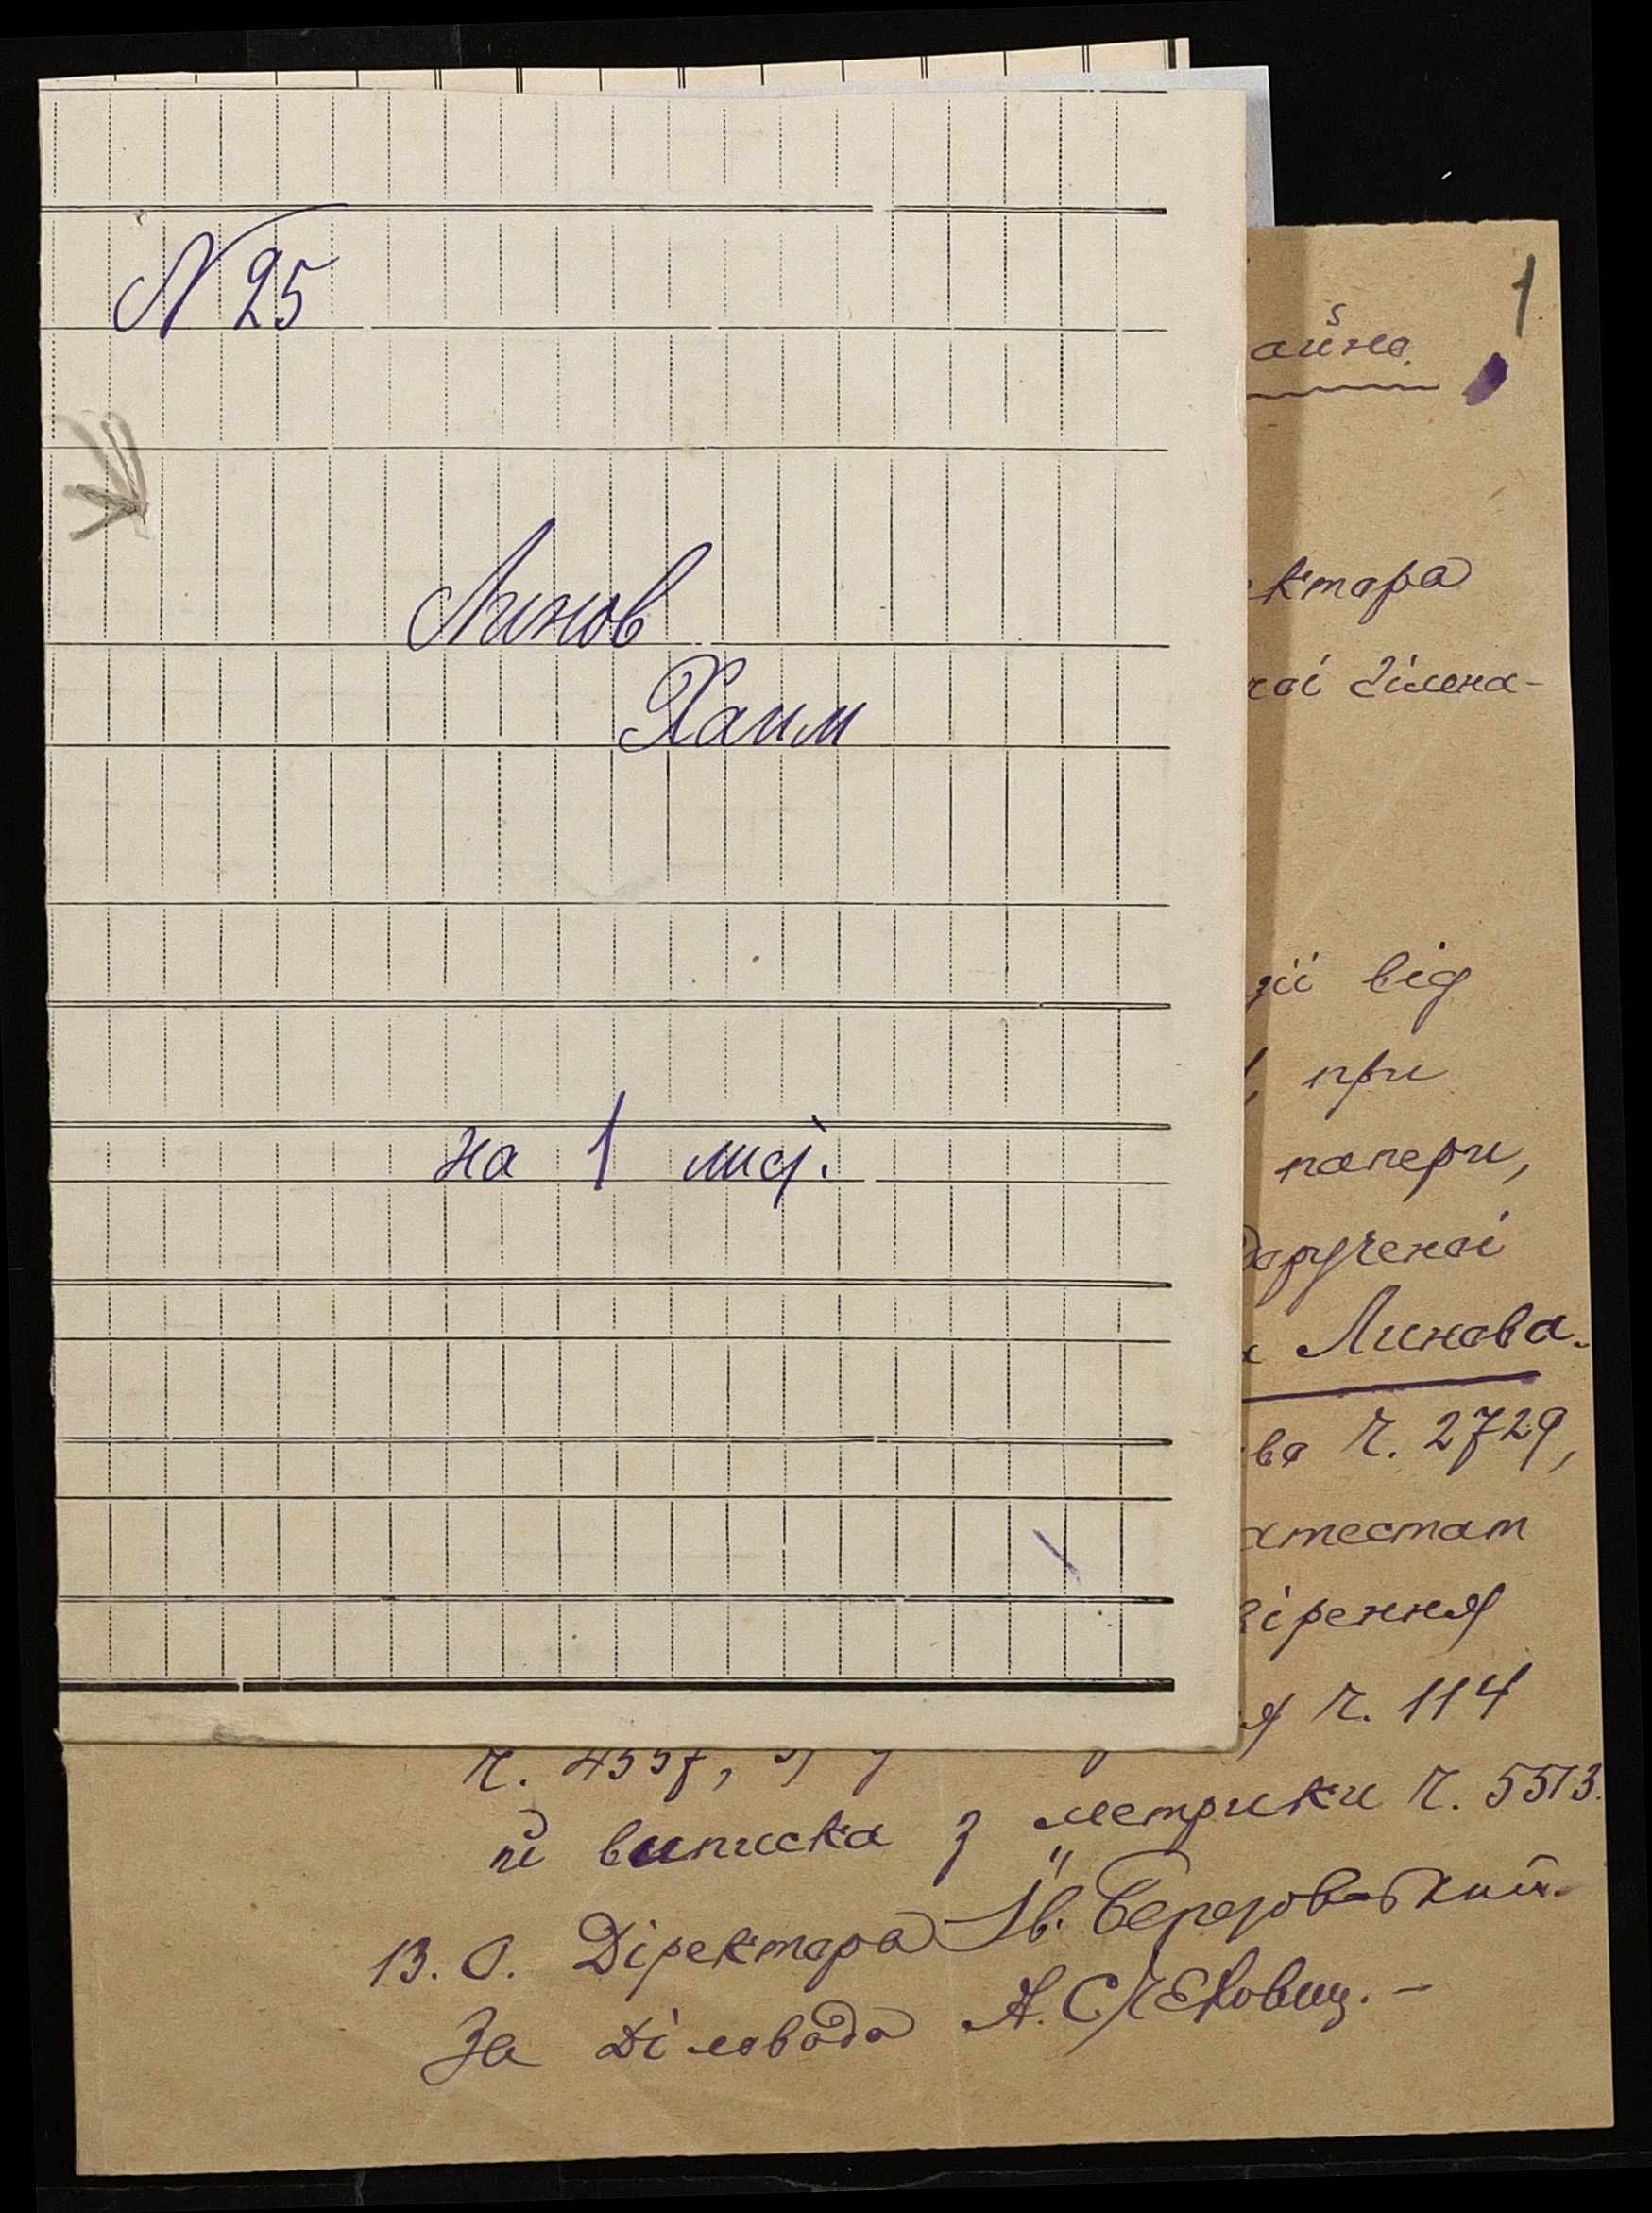 N 25
Линов
Хаим
на 1 лист.
1
айно.
ктора
ної Гімна-
зії від
при
папери,
дорученої
Линова.
ва Ч. 2729,
атестат
ірення
я Ч. 114
Ч. 4557,
й виписка з метрики Ч. 5513.
В. О. Діректора Ів. Березовський.
За Діловода А.